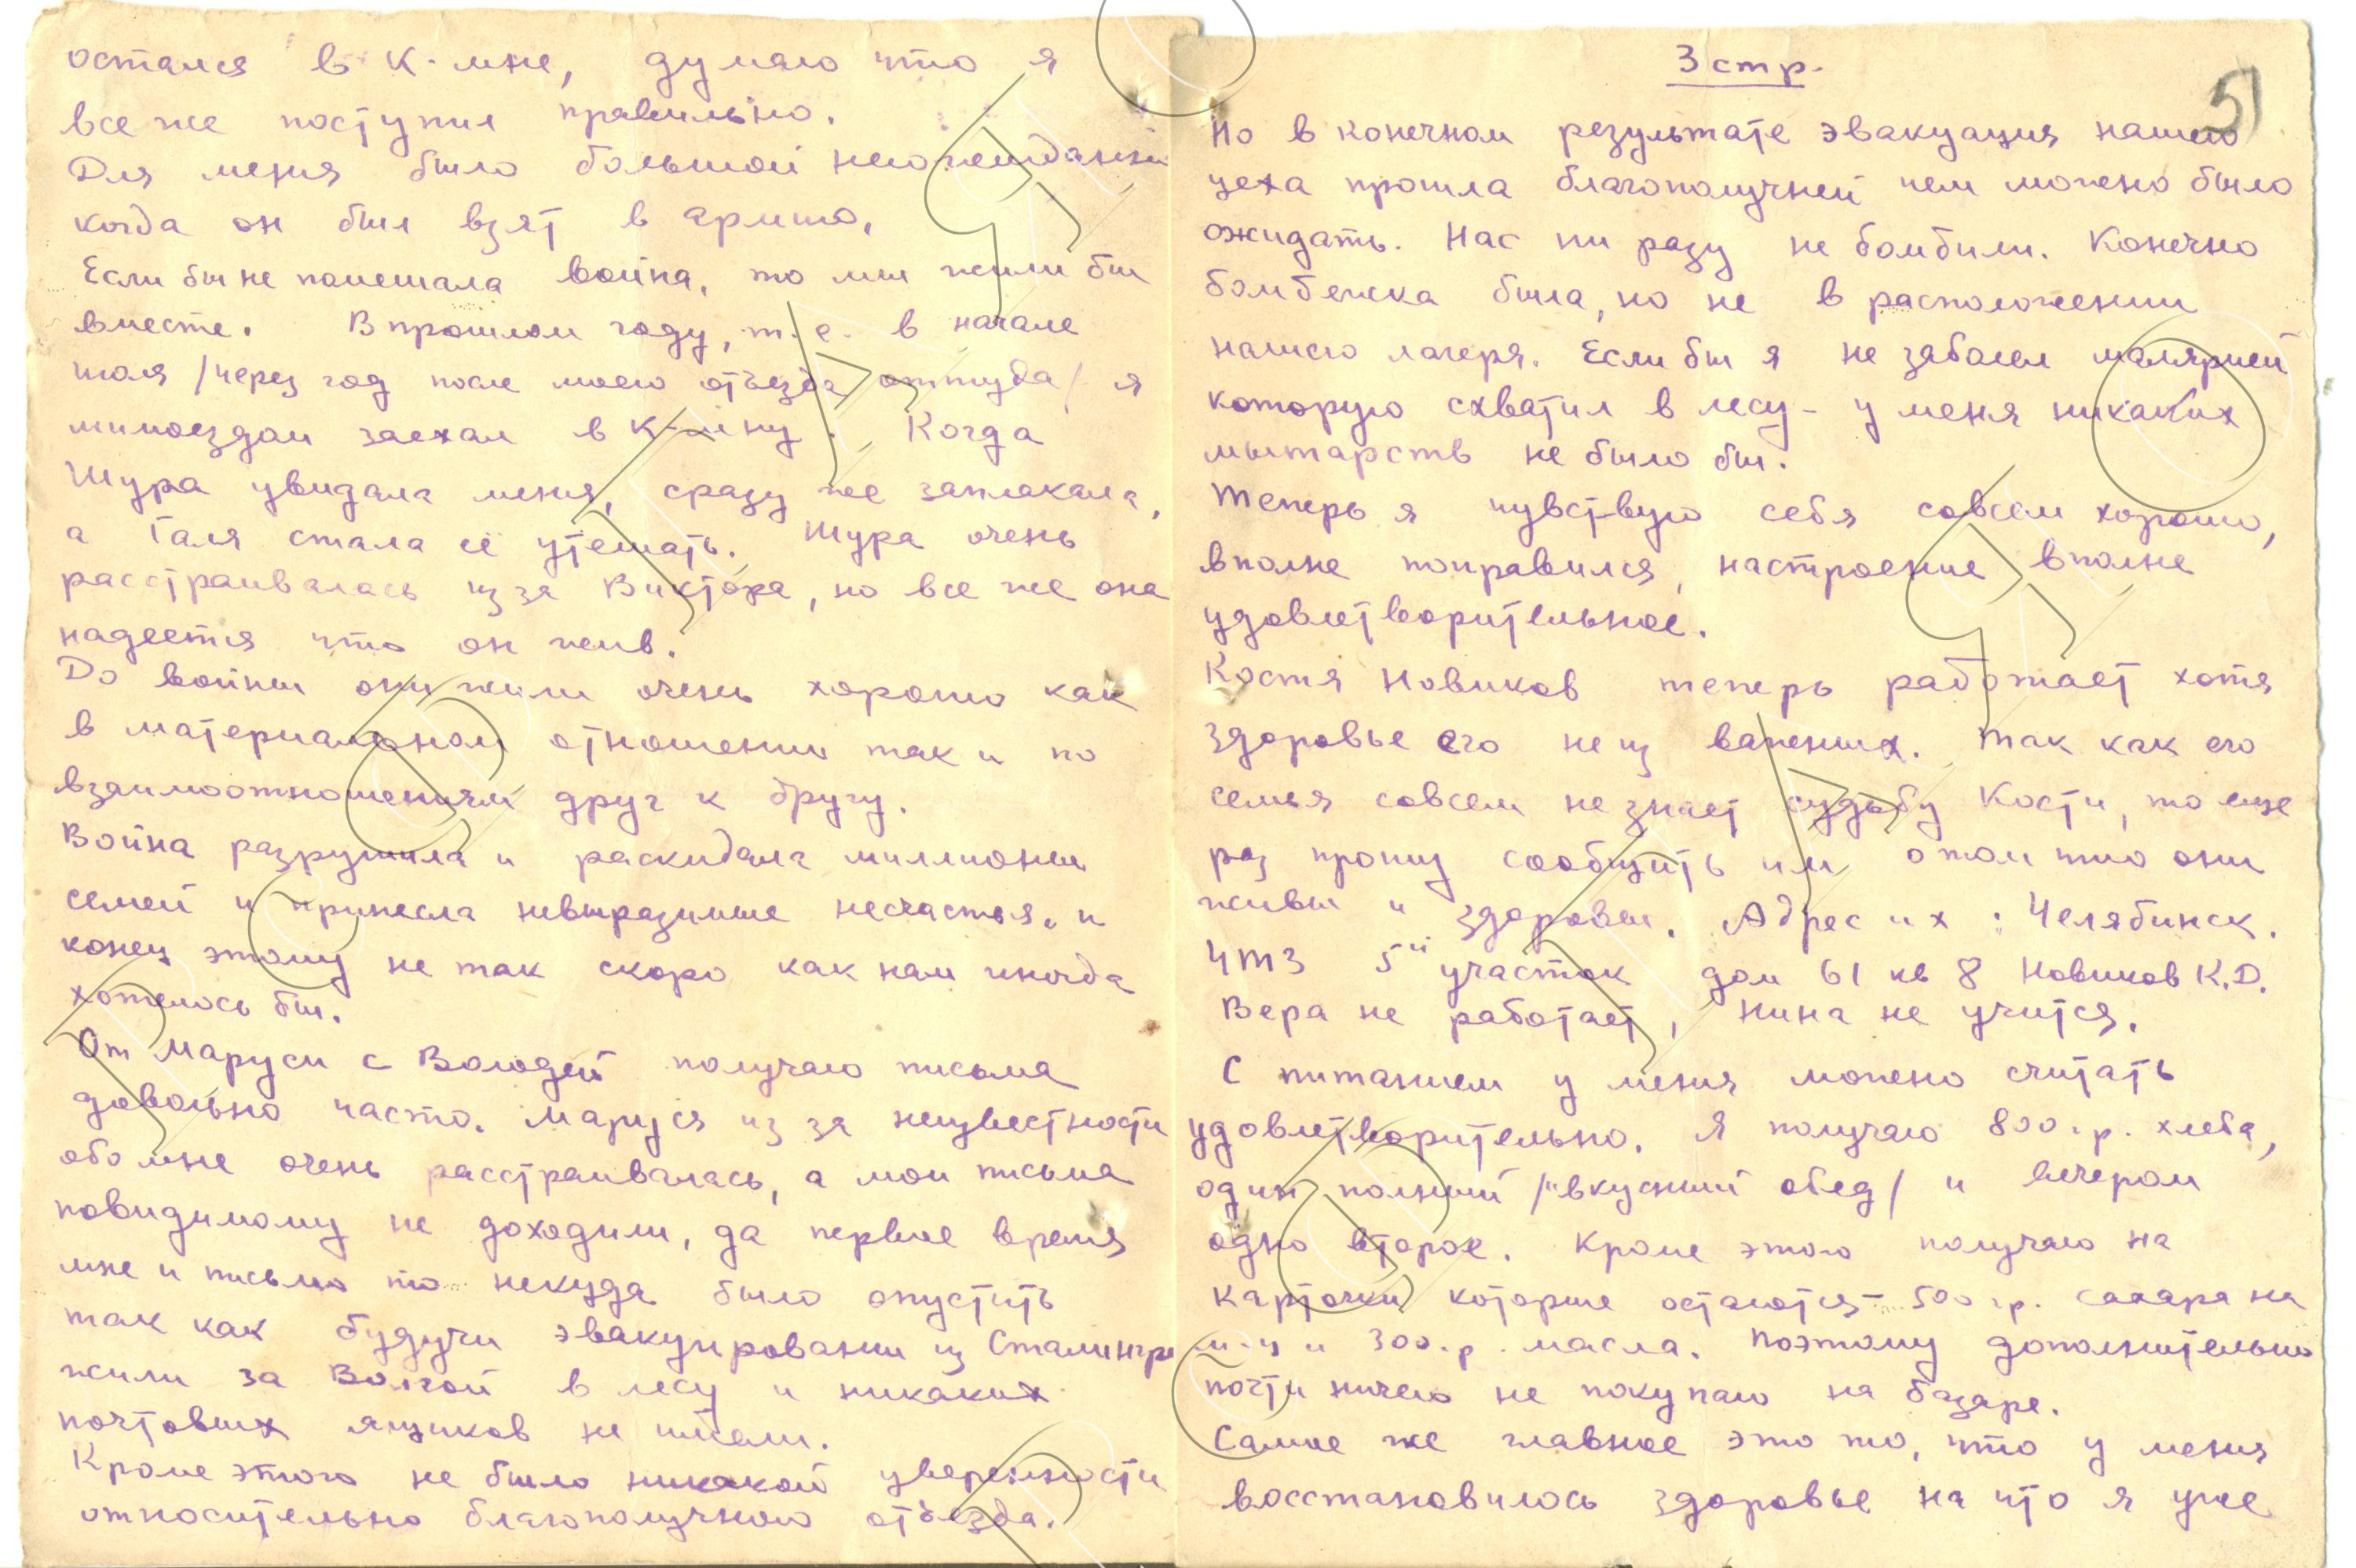 остался в К-мне, думаю что я
все же поступил правильно.
Для меня было большой неожиданн
когда он был взят в армию.
Если бы не помешала война, то мы жили бы
вместе. В прошлом году, т.е. в начале
июля /через год после моего отъезда оттуда/ я
мимоездом заехал в К-мну. Когда
Шура увидала меня, сразу же заплакала,
а Галя стала её утешать. Шура очень
расстраивалась из за Виктора, но все же она
надеется что он жив.
До войны они жили очень хорошо как
в материальном отношении так и по
взаимоотношениям друг к другу.
Война разрушила и раскидала миллионы
семей и принесла невыразимые несчастья. и
конец этому не так скоро как нам иногда
хотелось бы.
От Маруси с Володей получаю письма
довольно часто. Маруся из за неизвестности
обо мне очень расстраивалась, а мои письма
повидимому не доходили, да первое время
мне и письмо то некуда было опустить
так как будучи эвакуированы из Сталингр
жили за Волгой в лесу и никаких
почтовых ящиков не имели.
Кроме этого не было никакой уверенности
относительно благополучного отъезда.
3 стр.
51
Но в конечном результате эвакуация нашего
цеха прошла благополучней чем можно было
ожидать. Нас ни разу не бомбили. Конечно
бомбежка была, но не в расположении
нашего лагеря. Если бы я не заболел малярией
которую схватил в лесу - у меня никаких
мытарств не было бы.
Теперь я чувствую себя совсем хорошо,
вполне поправился, настроение вполне
удовлетворительное.
Костя Новиков теперь работает хотя
здоровье его не из важных. Так как его
семья совсем не знает судьбу Кости, то еще
раз прошу сообщить им о том что они
живы и здоровы. Адрес их: Челябинск.
ЧТЗ 5й участок дом 61 кв 8 Новиков К.Д.
Вера не работает, Нина не учится.
С питанием у меня можно считать
удовлетворительно. Я получаю 800 гр. хлеба,
один полный /"вкусный обед/ и вечером
одно второе. Кроме этого получаю на
карточки которые остаются - 500 гр. сахара на
м-ц и 300 гр. масла. Поэтому дополнительно
почти ничего не покупаю на базаре.
Самое же главное это то, что у меня
восстановилось здоровье на что я уже